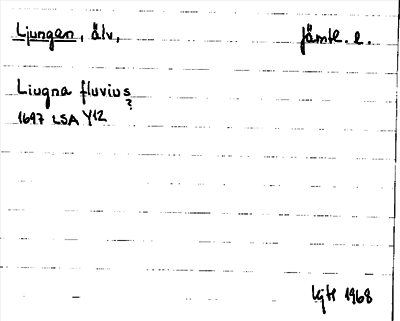 Ljungan, älv, jämtl. l.
Liugna fluvius
?
1697 LSA Y12
LgH 1968